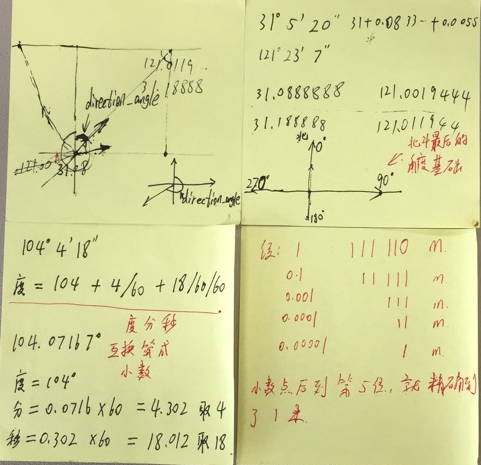 121.0119
31.18888
direction_angle
121.00
31.18
direction_angle
31° 5' 20" 31+0.0833 +0.0055
121° 23' 7"
31.0888888 121.0019444
31.188888 121.011944
北
0°
北斗最后的
角度基础
270° 90°
180°
104° 4' 18"
度 = 104 + 4/60 + 18/60/60
104.07167° 度分秒
互换算成
小数
度=104°
分=0.0716×60 = 4.302 取4
秒=0.302 ×60 = 18.012 取18
1 111110 m
0.1 11111 m
0.001 111 m
0.0001 11 m
0.00001 1 m
小数点后到第5位，就精确到
了1米